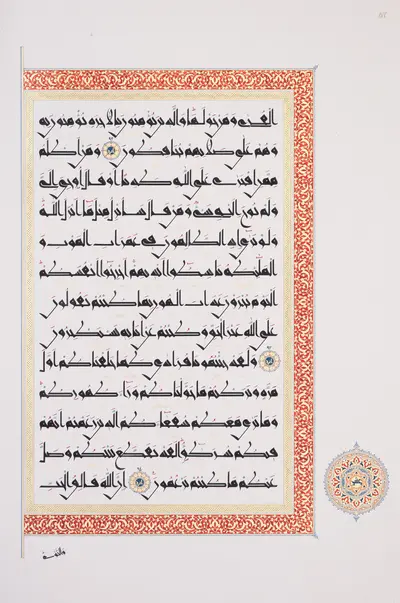 القرى ومن حولها والذين يؤمنون بالآخرة يؤمنون به
وهم على صلاتهم يحافظون ومن أظلم
ممن افترى على الله كذبا أو قال أوحي إلي
ولم يوح إليه شيء ومن قال سأنزل مثل ما أنزل الله
ولو ترى إذ الظالمون في غمرات الموت و
الملائكة باسطوا أيديهم أخرجوا أنفسكم
اليوم تجزون عذاب الهون بما كنتم تقولون
على الله غير الحق وكنتم عن آياته تستكبرون
ولقد جئتمونا فرادى كما خلقناكم أول
مرة وتركتم ما خولناكم وراء ظهوركم
وما نرى معكم شفعاءكم الذين زعمتم أنهم
فيكم شركاء لقد تقطع بينكم وضل
عنكم ما كنتم تزعمون إن الله فالق الحب
والنوى